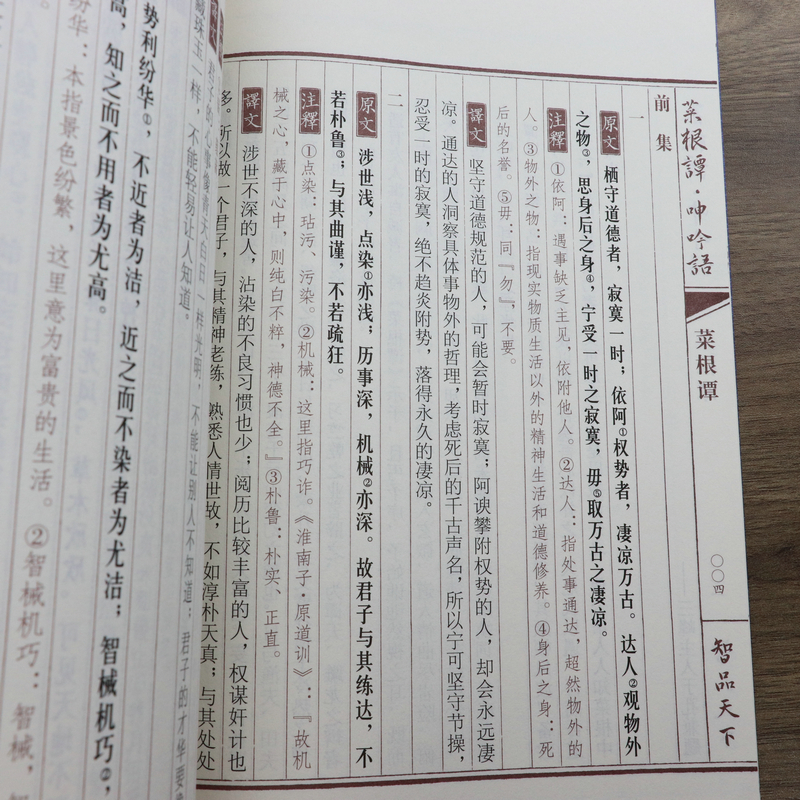 菜根譚·呻吟語
菜根谭
〇〇四
智品天下
前集
一
原文 栖守道德者，寂寞一时；依阿①权势者，凄凉万古。达人②观物外
之物③，思身后之身④，宁受一时之寂寞，毋⑤取万古之凄凉。
注釋 ①依阿：遇事缺乏主见，依附他人。②达人：指处事通达，超然物外的
人。③物外之物：指现实物质生活以外的精神生活和道德修养。④身后之身：死
后的名誉。⑤毋：同『勿』，不要。
譯文 坚守道德规范的人，可能会暂时寂寞；阿谀攀附权势的人，却会永远凄
凉。通达的人洞察具体事物外的哲理，考虑死后的千古声名，所以宁可坚守节操，
忍受一时的寂寞，绝不趋炎附势，落得永久的凄凉。
二
原文 涉世浅，点染①亦浅；历事深，机械②亦深。故君子与其练达，不
若朴鲁③；与其曲谨，不若疏狂。
注釋 ①点染：玷污、污染。②机械：这里指巧诈。《淮南子·原道训》：『故机
械之心，藏于心中，则纯白不粹，神德不全。』③朴鲁：朴实、正直。
譯文 涉世不深的人，沾染的不良习惯也少；阅历比较丰富的人，权谋奸计也
多。所以做一个君子，与其精神老练，熟悉人情世故，不如淳朴天真；与其处处
君子的心事像青天白日一样光明，不能让别人不知道；君子的才华要
藏珠玉一样，不能轻易让人知道。
势利纷华①，不近者为洁，近之而不染者为尤洁；智械机巧②，
高，知之而不用者为尤高。
纷华：本指景色纷繁，这里意为富贵的生活。②智械机巧：智械，